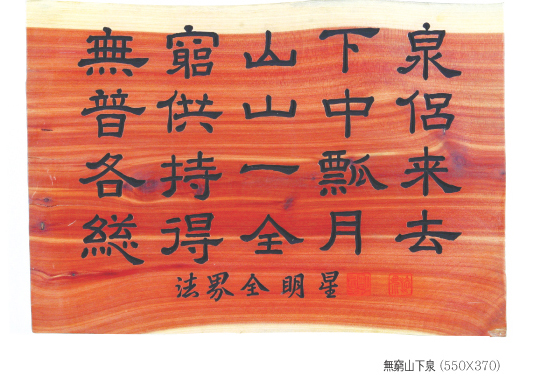 無窮山下泉
普供山中侶
各持一瓢来
総得全月去
法界全明星
無窮山下泉 (550X370)